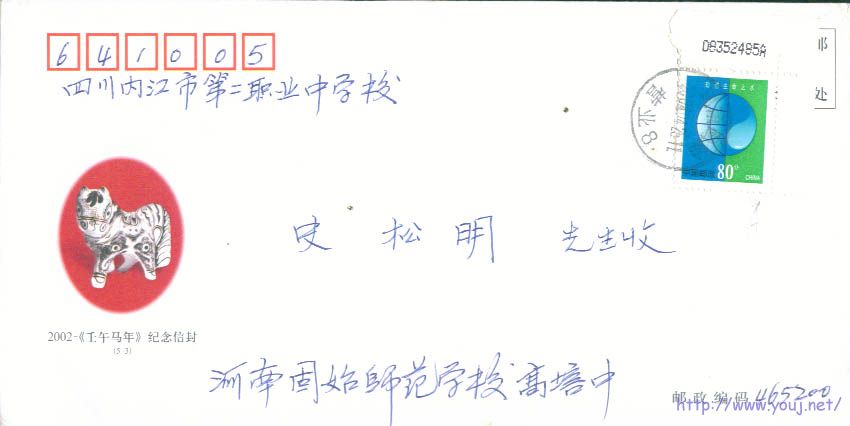 641005
四川内江市第二职业中学校
D8352485A
邮
处
珍惜生命之水
中国邮政 80分 CHINA
史松明 先生收
2002-《壬午马年》纪念信封
(5-3)
河南固始师范学校高培中
邮政编码 465200
http://www.youj.net/